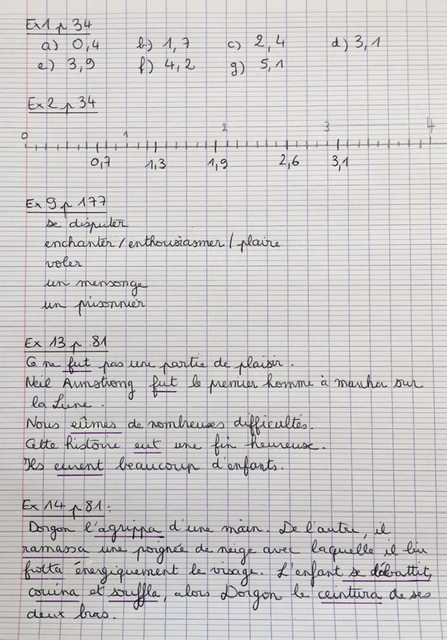 Ex1 p 34
a) 0,4 b) 1,7 c) 2,4 d) 3,1
e) 3,9 f) 4,2 g) 5,1
Ex2 p 34
0 1 2 3 4
0,7 1,3 1,9 2,6 3,1
Ex 9 p 177
se disputer
enchanter / enthousiasmer / plaire
voler
un mensonge
un prisonnier
Ex 13 p 81
Ce ne fut pas une partie de plaisir.
Neil Armstrong fut le premier homme à marcher sur
la Lune.
Nous eûmes de nombreuses difficultés.
Cette histoire eut une fin heureuse.
Ils eurent beaucoup d'enfants.
Ex 14 p 81 :
Dorgon l'agrippa d'une main. De l'autre, il
ramassa une poignée de neige avec laquelle il lui
frotta énergiquement le visage. L'enfant se débattit,
couina et souffla, alors Dorgon le ceintura de ses
deux bras.